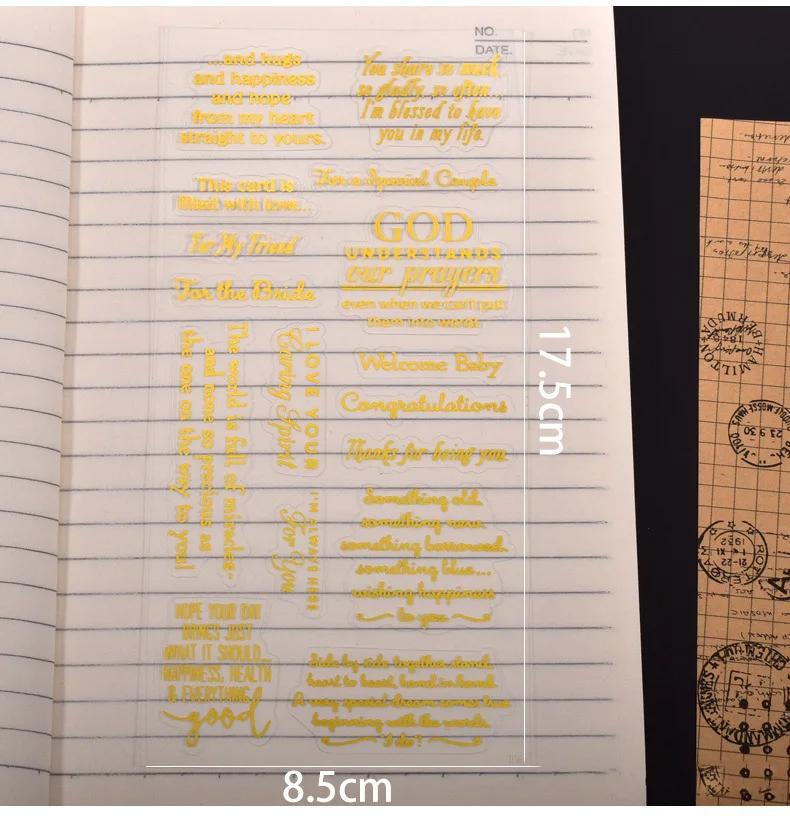 NO.
DATE.
...and hugs
and happiness
and hope
from my heart
straight to yours.
You share so much,
so gladly, so often...
I'm blessed to have
you in my life.
This card is
filled with love...
For a Special Couple
For My Friend
For the Bride
GOD
UNDERSTANDS
our prayers
even when we can't put
them into words
Welcome Baby
Congratulations
Thanks for being you
The world is full of miracles-
and none so precious as
the one on the way to you!
I LOVE YOUR
Caring Spirit
I'M ALWAYS HERE
For You
Something old,
something new,
something borrowed,
something blue...
wishing happiness
to you
HOPE YOUR DAY
BRINGS JUST
WHAT IT SHOULD...
HAPPINESS, HEALTH
& EVERYTHING
good
Side by side together stand,
heart to heart, hand in hand.
A very special dream comes true
beginning with the words,
"I do"!
17.5cm
8.5cm
HAMILTON
BERMUDA
23 9 30
ROTTERDAM
21-22
1 XI
1932